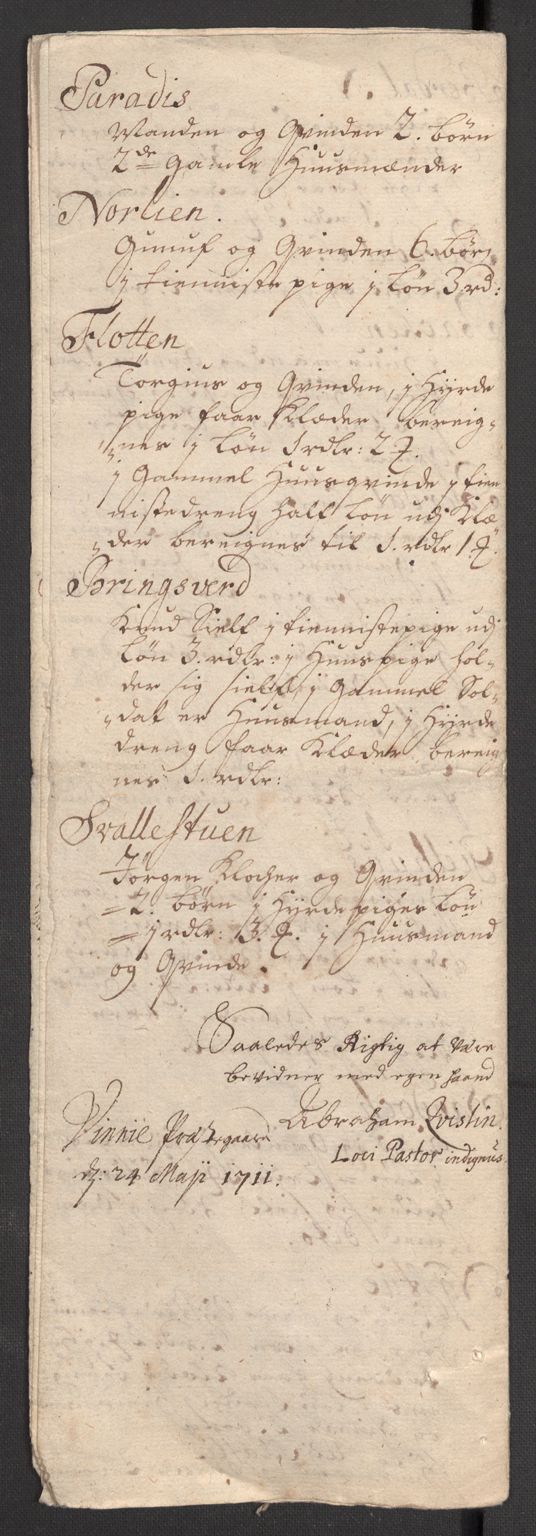 Paradis
Manden og Qvinden 2. børn
2de gamle Huusmænder
Norlien.
Gunuf og Qvinden 6. børn
j tienniste pige j løn 3 rd:
Flotten
Torgius og Qvinden, j Hyrde
pige faar Klæder bereig-
nes j løn 1 rdlr: 2 
j Gammel Huusqvinde j tien
nistedreng half løn udj Klæ
der bereignes til 1. rdlr 1 
Bringsverd
Knud Sielf j tiennistepige udj
løn 3. rdlr: j Huuspige hol-
der sig sielf j Gammel Sol-
dat er Huusmand, j Hyrde
dreng faar Klæder, bereig
nes 1. rdlr:
Svallestuen
Jørgen Klocher og Qvinden
2. børn j Hyrde piges løn
1 rdlr: 3. j Huusmand
og Qvinde.
Saaledes Rigtig at være
bevidner med egen haand
Abraham Qvistin.
Loci Pastor indignus
Vinnie Præstegaard
d: 24 Maji 1711.